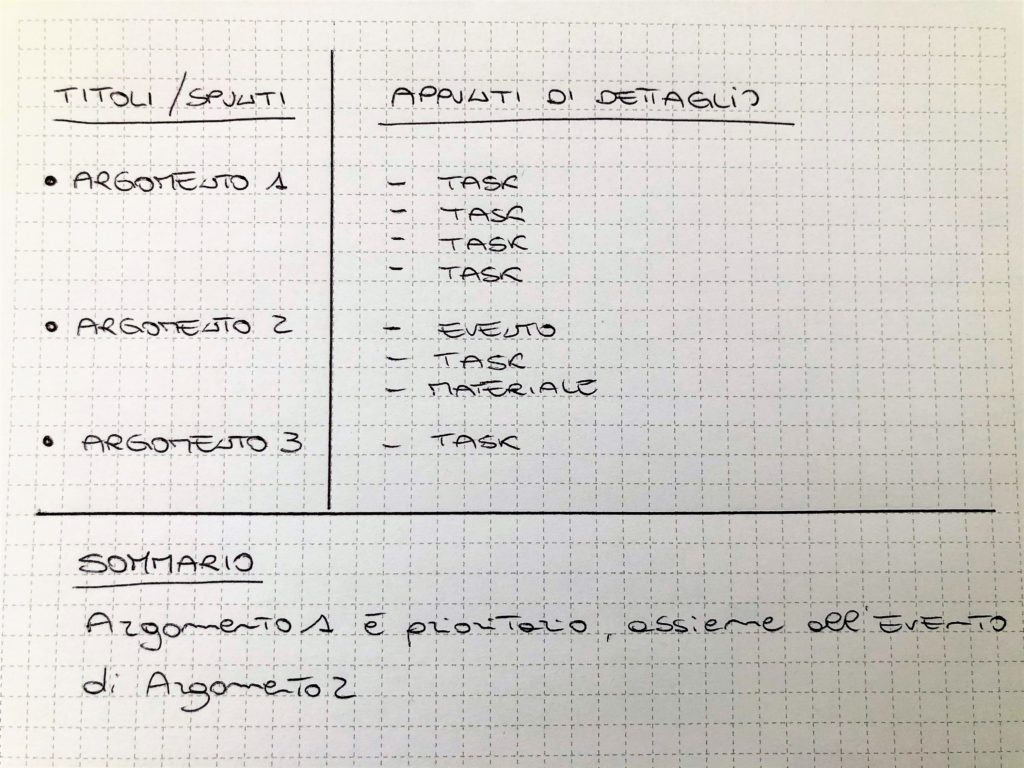 TITOLI / SPUNTI
APPUNTI DI DETTAGLIO
• ARGOMENTO 1
– TASK
– TASK
– TASK
– TASK
• ARGOMENTO 2
– EVENTO
– TASK
– MATERIALE
• ARGOMENTO 3
– TASK
SOMMARIO
Argomento 1 è prioritario, assieme all'EVENTO
di Argomento 2